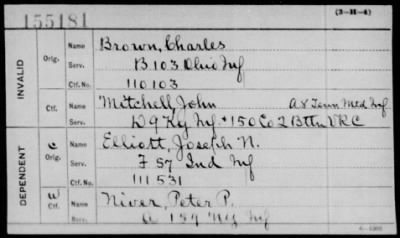 155181
(3-H-4)
INVALID
Orig.
Name Brown, Charles
Serv. B 103 Ohio Inf
Ctf. No. 110103
Ctf.
Name Mitchell John A 8 Tenn Mtd Inf
Serv. D 9 Ky Inf + 150 Co 2 Bttn VRC
DEPENDENT
C
Orig.
Name Elliott, Joseph N.
Serv. F 57 Ind Inf
Ctf. No. 111531
W
Ctf.
Name Niver, Peter P.
Serv. NY Inf